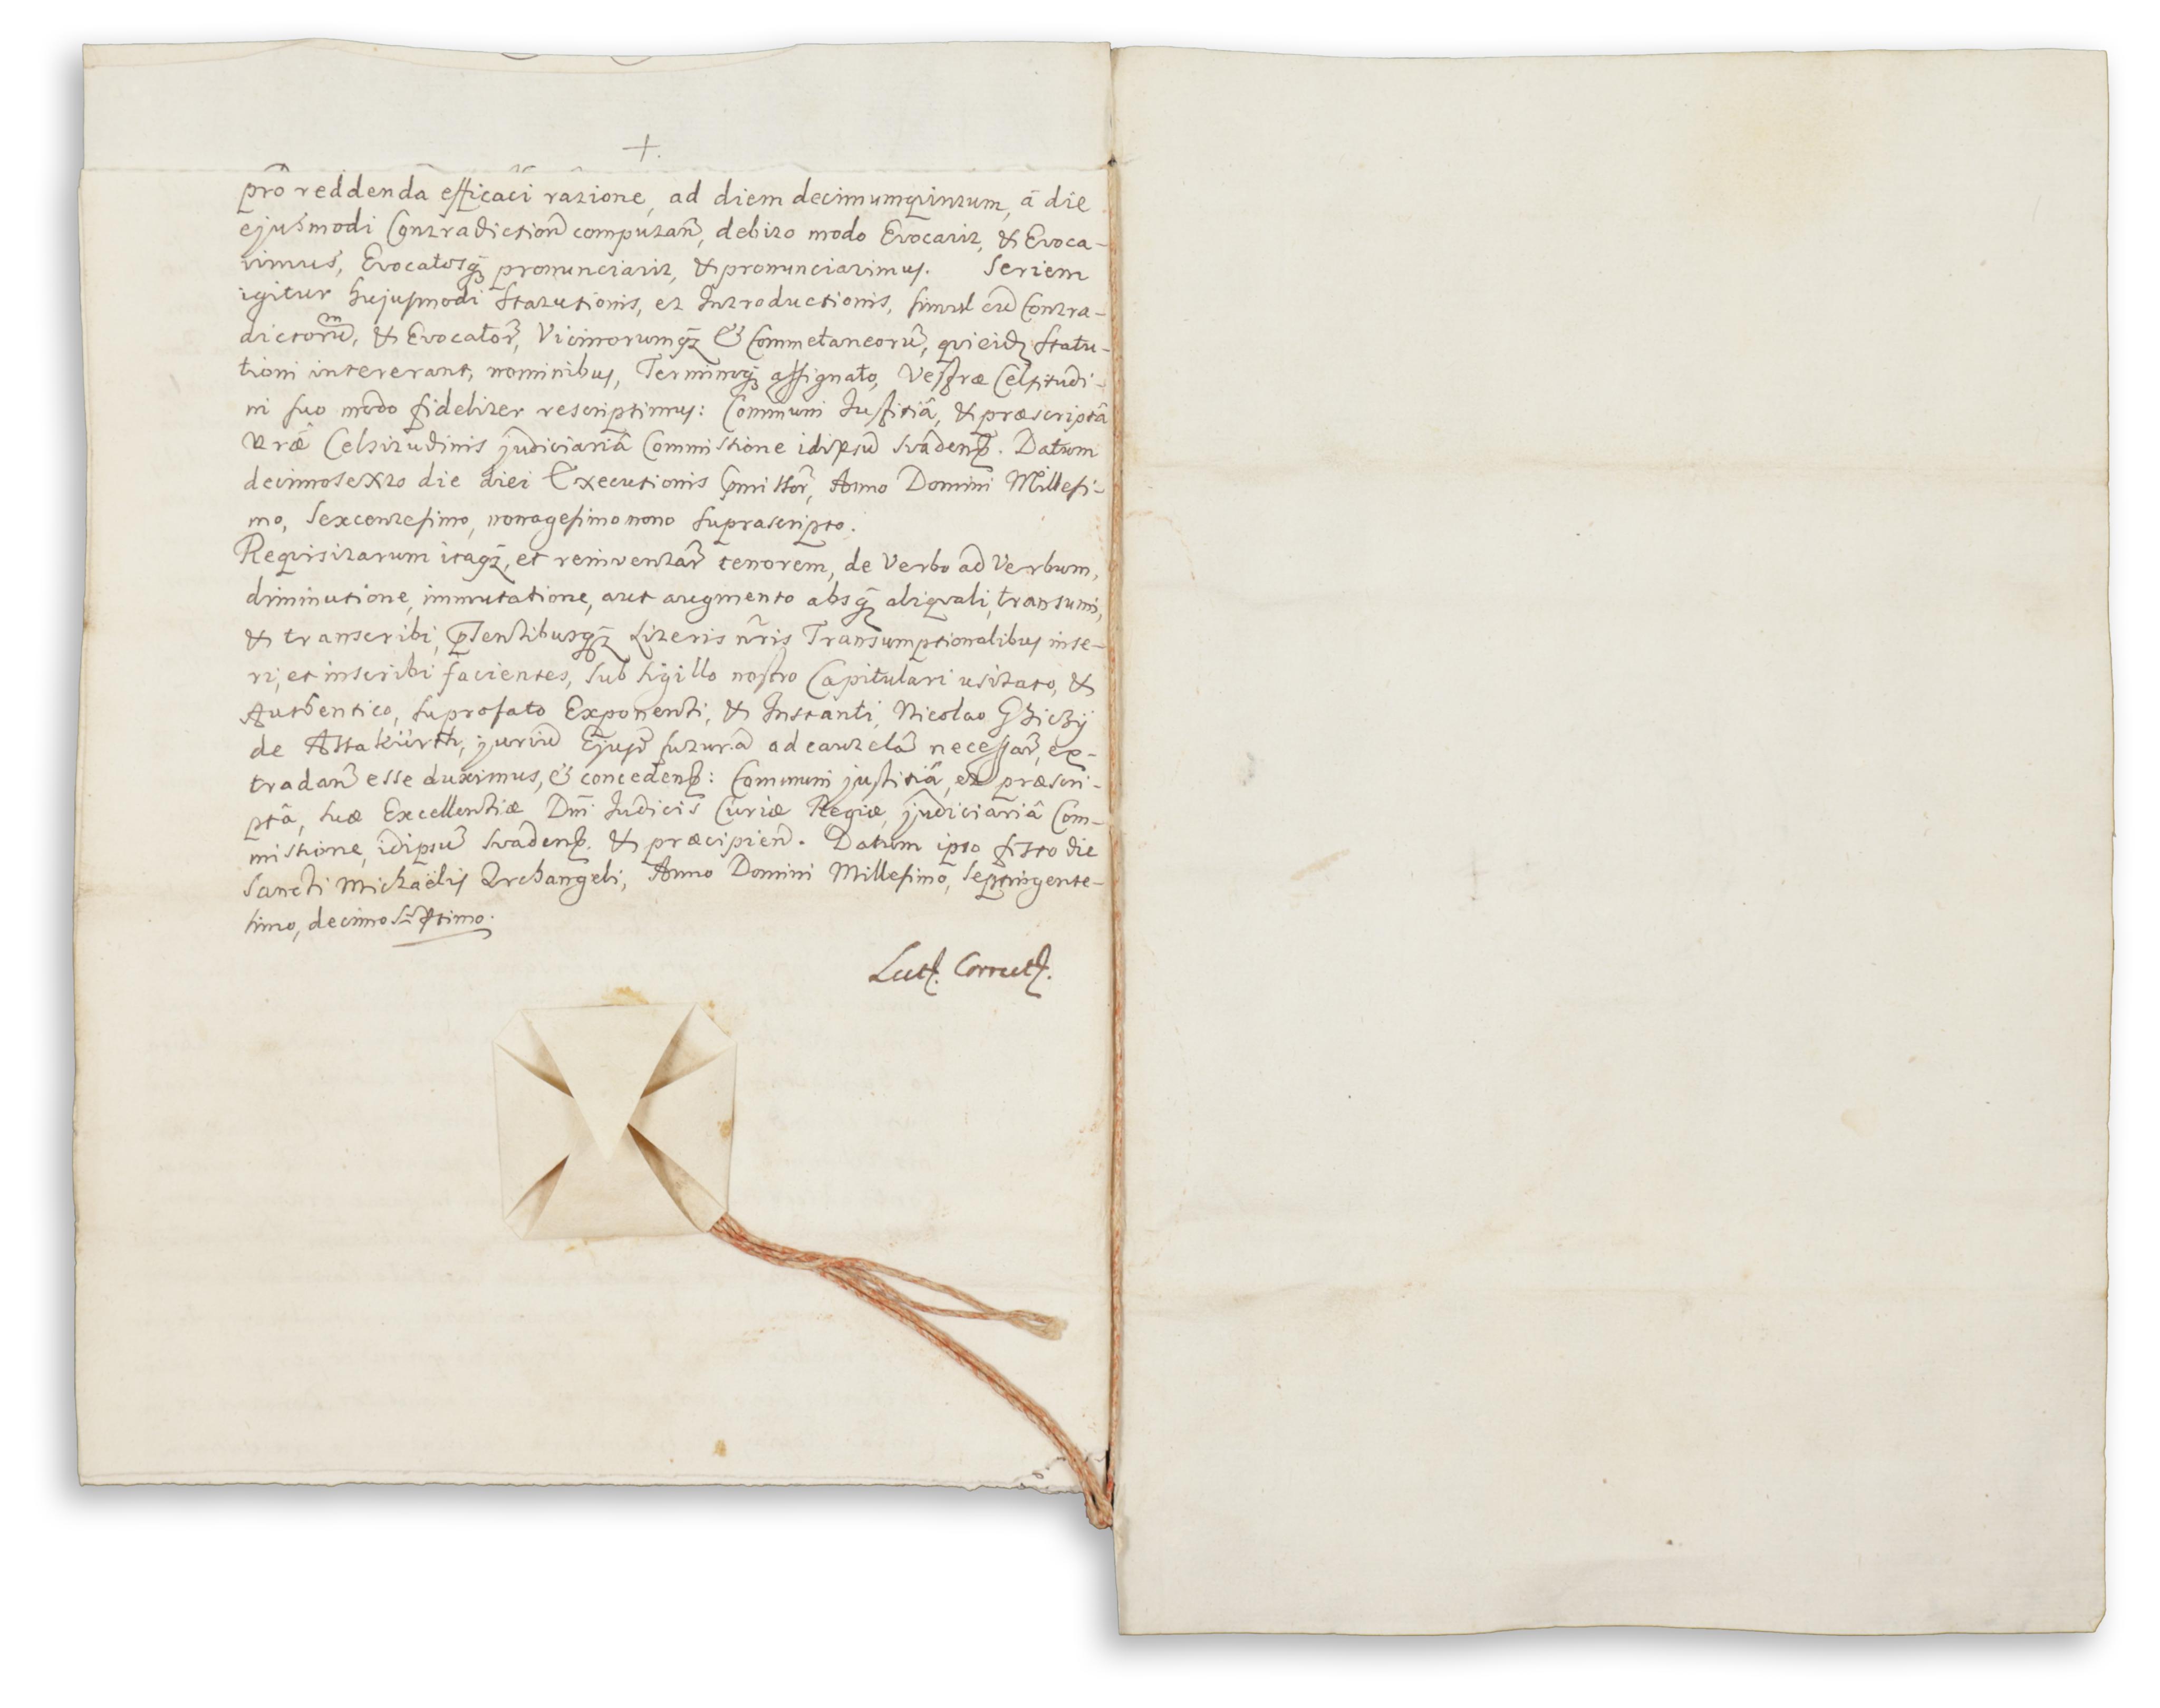 +.
prô reddenda efficaci ratione, ad diem decimumquintum, â die
ejusmodi Contradiction̄ computan̄, debito modo Evocavit, & Evoca-
vimus, Evocatosq̄ pronunciavit, & pronunciavimus. Seriem
igitur hujusmodi Statutionis, et Introductionis, simul cū Contra-
dictorum, & Evocator̄, Vicinorumq̄ & Commetaneorū, qui eid Statu-
tioni intererant, nominibus, Terminoq̄ assignato, Vestræ Celsitudi-
ni suo modo fideliter rescripsimus: Communi Justitiâ, & præscriptâ
Vræ Celsitudinis judiciariâ Commissione idipsū svaden. Datum
decimosexto die diei Executionis p̄missor̄, Anno Domini Millesi-
mo, Sexcentesimo, nonagesimo nono suprascripto.
Requisitarum itaq̄, et reinventar̄ tenorem, de Verbo ad Verbum,
diminutione, immutatione, aut augmento absq̄ aliquali, transumi,
& transcribi, p̄sentibusq̄ Literis nr̄is Transumptionalibus inse-
ri, et inscribi facientes, sub sigillo nostro Capitulari usitato, &
Authentico, suprafato Exponenti, & Instanti, Nicolao Ghiczÿ
de Assakürth, juriū Ejusd̄ futurâ ad cautelâ necessar̄, ex-
tradan̄ esse duximus, & conceden: Communi justitiâ, et præscri-
ptâ, suæ Excellentiæ Dn̄i Judicis Curiæ Regiæ, judiciariâ Com-
missione, idipsū svaden. & præcipien̄. Datum ipso festo die
Sancti Michaëlis Archangeli, Anno Domini Millesimo, Septingente-
simo, decimo Septimo.
Lect. Correct.